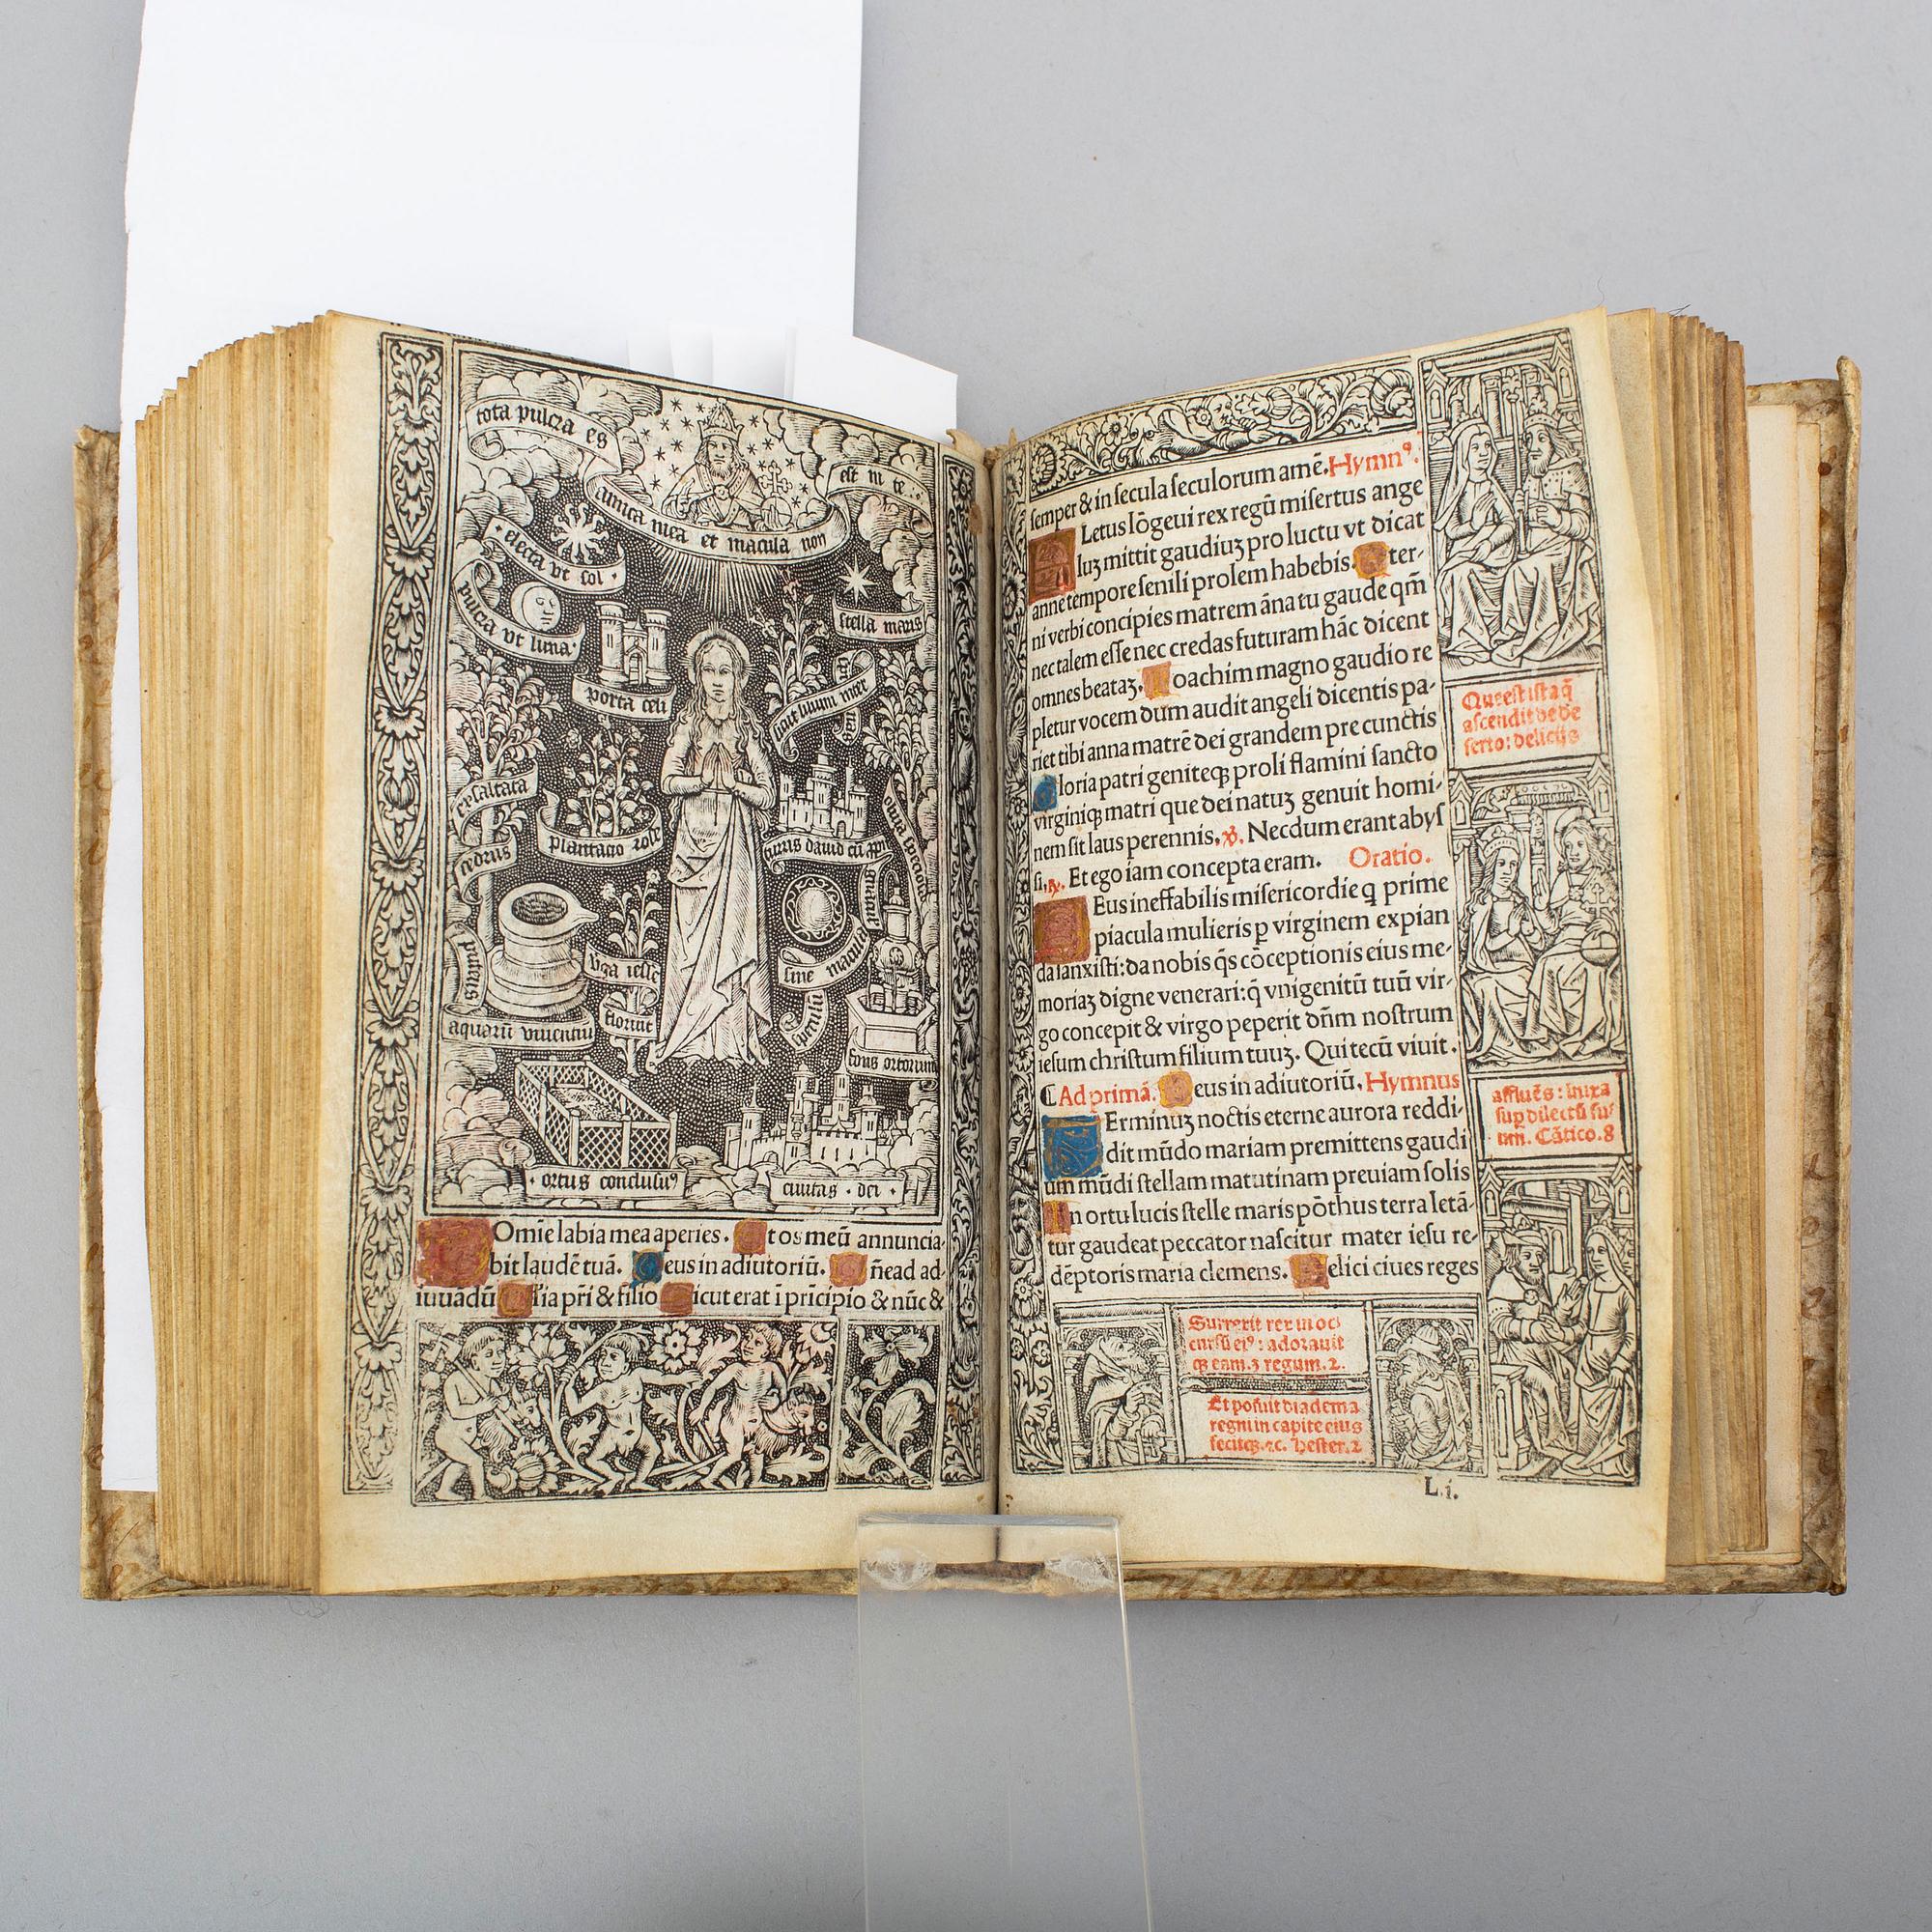 tota pulcra es
amica mea et macula non
est in te
electa vt sol
pulcra vt luna
porta celi
stella maris
sicut lilium inter
exaltata
cedrus
plantatio rose
turris dauid cũ
oliua speciosa
puteus
aquarũ viuentiũ
v̾ga iesse
floruit
speculũ
sine macula
fons ortorum
ortus conclusuꝰ
ciuitas dei
Omĩe labia mea aperies. t os meũ annuncia-
bit laudẽ tuã. eus in adiutoriũ. ñe ad ad-
iuuãdũ l'ia pr̃i & filio icut erat ĩ prĩcipio & nũc &
semper & in secula seculorum amẽ. Hymnꝰ.
Letus lõgeui rex regũ misertus ange
luʒ mittit gaudiuʒ pro luctu vt dicat
anne tempore senili prolem habebis. ter-
ni verbi concipies matrem ãna tu gaude qm̃
nec talem esse nec credas futuram hãc dicent
omnes beataʒ. oachim magno gaudio re
pletur vocem dum audit angeli dicentis pa-
riet tibi anna matrẽ dei grandem pre cunctis
loria patri geniteqʒ proli flamini sancto
virginiqʒ matri que dei natuʒ genuit homi-
nem sit laus perennis, ℣. Necdum erant abyſ
si, ℟. Et ego iam concepta eram. Oratio.
Eus ineffabilis misericordie q̃ prime
piacula mulieris ꝑ virginem expian
da sanxisti: da nobis q̃s cõceptionis eius me-
moriaʒ digne venerari: q̃ vnigenitũ tuũ vir-
go concepit & virgo peperit dñm nostrum
iesum christum filium tuuʒ. Qui tecũ viuit.
⸿ Ad primã. eus in adiutoriũ. Hymnus
Erminuʒ noctis eterne aurora reddi-
dit mũdo mariam premittens gaudi
um mũdi stellam matutinam preuiam solis
n ortu lucis stelle maris põthus terra letã-
tur gaudeat peccator nascitur mater iesu re-
dẽptoris maria clemens. elici ciues reges
Que est ista q̃
ascendit de de
serto: delicijs
affluẽs: inixa
sup dilectũ su
um. Cãtico. 8
Surrexit rex in oc
cursũ eiꝰ: adorauit
qʒ eam. 3 regum. 2.
Et posuit diadema
regni in capite eius
fecitqʒ. ⁊c. Hester. 2
L.i.